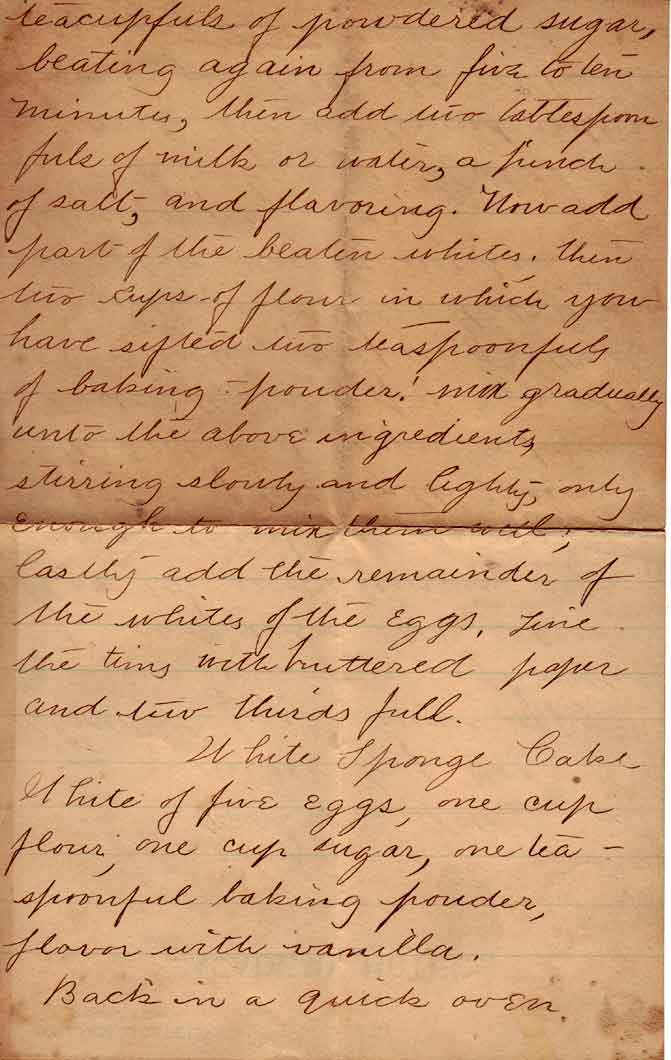 teacupfuls of powdered sugar,
beating again from five to ten
minutes, then add two tablespoon
fuls of milk or water, a pinch
of salt, and flavoring. Now add
part of the beaten whites. then
two cups of flour in which you
have sifted two teaspoonfuls
of baking-powder! mix gradually
unto the above ingredients,
stirring slowly and lightly, only
enough to mix them well;
lastly add the remainder of
the whites of the eggs. Line
the tins with buttered paper
and two thirds full.
White Sponge Cake
White of five eggs, one cup
flour, one cup sugar, one tea-
spoonful baking powder,
flavor with vanilla.
Back in a quick oven.